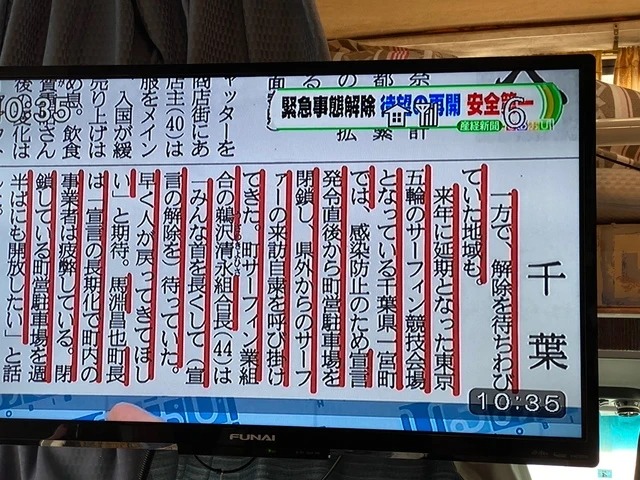 緊急事態解除 待望の再開 安全第一
産経新聞
10:35
千葉
一方で、解除を待ちわび
ていた地域も。
来年に延期となった東京
五輪のサーフィン競技会場
となっている千葉県一宮町
では、感染防止のため宣言
発令直後から町営駐車場を
閉鎖し、県外からのサーフ
ァーの来訪自粛を呼び掛け
てきた。町サーフィン業組
合の鵜沢清永組合長(44)は
「みんな首を長くして(宣
言の解除を)待っていた。
早く人が戻ってきてほし
い」と期待。馬淵昌也町長
は「宣言の長期化で町内の
事業者は疲弊している。閉
鎖している町営駐車場を週
半ばにも開放したい」と話
ャッターを
商店街にあ
店主(40)は
服をメイン
入国が緩
売り上げは
め息。飲食
10:35
FUNAI